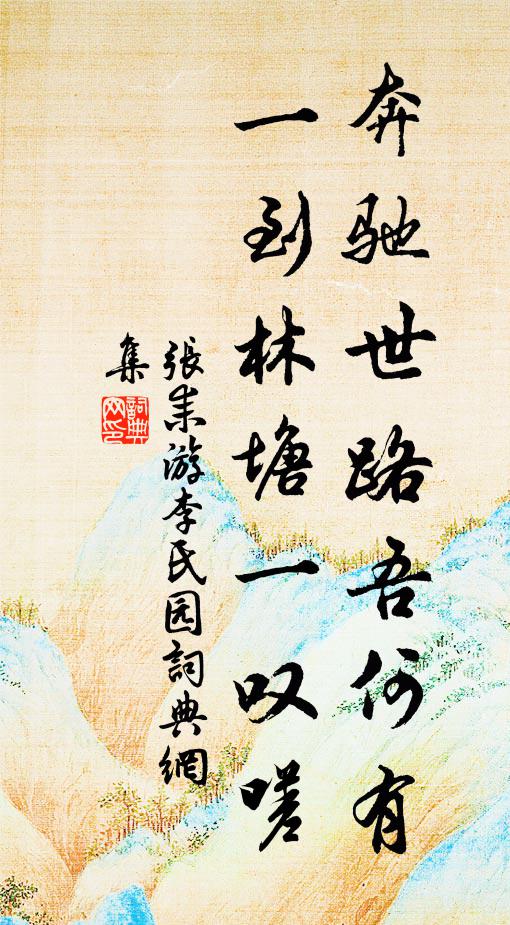 奔驰世路吾何有
一到林塘一叹嗟
張耒游李氏园詞典網
集
詞典网印